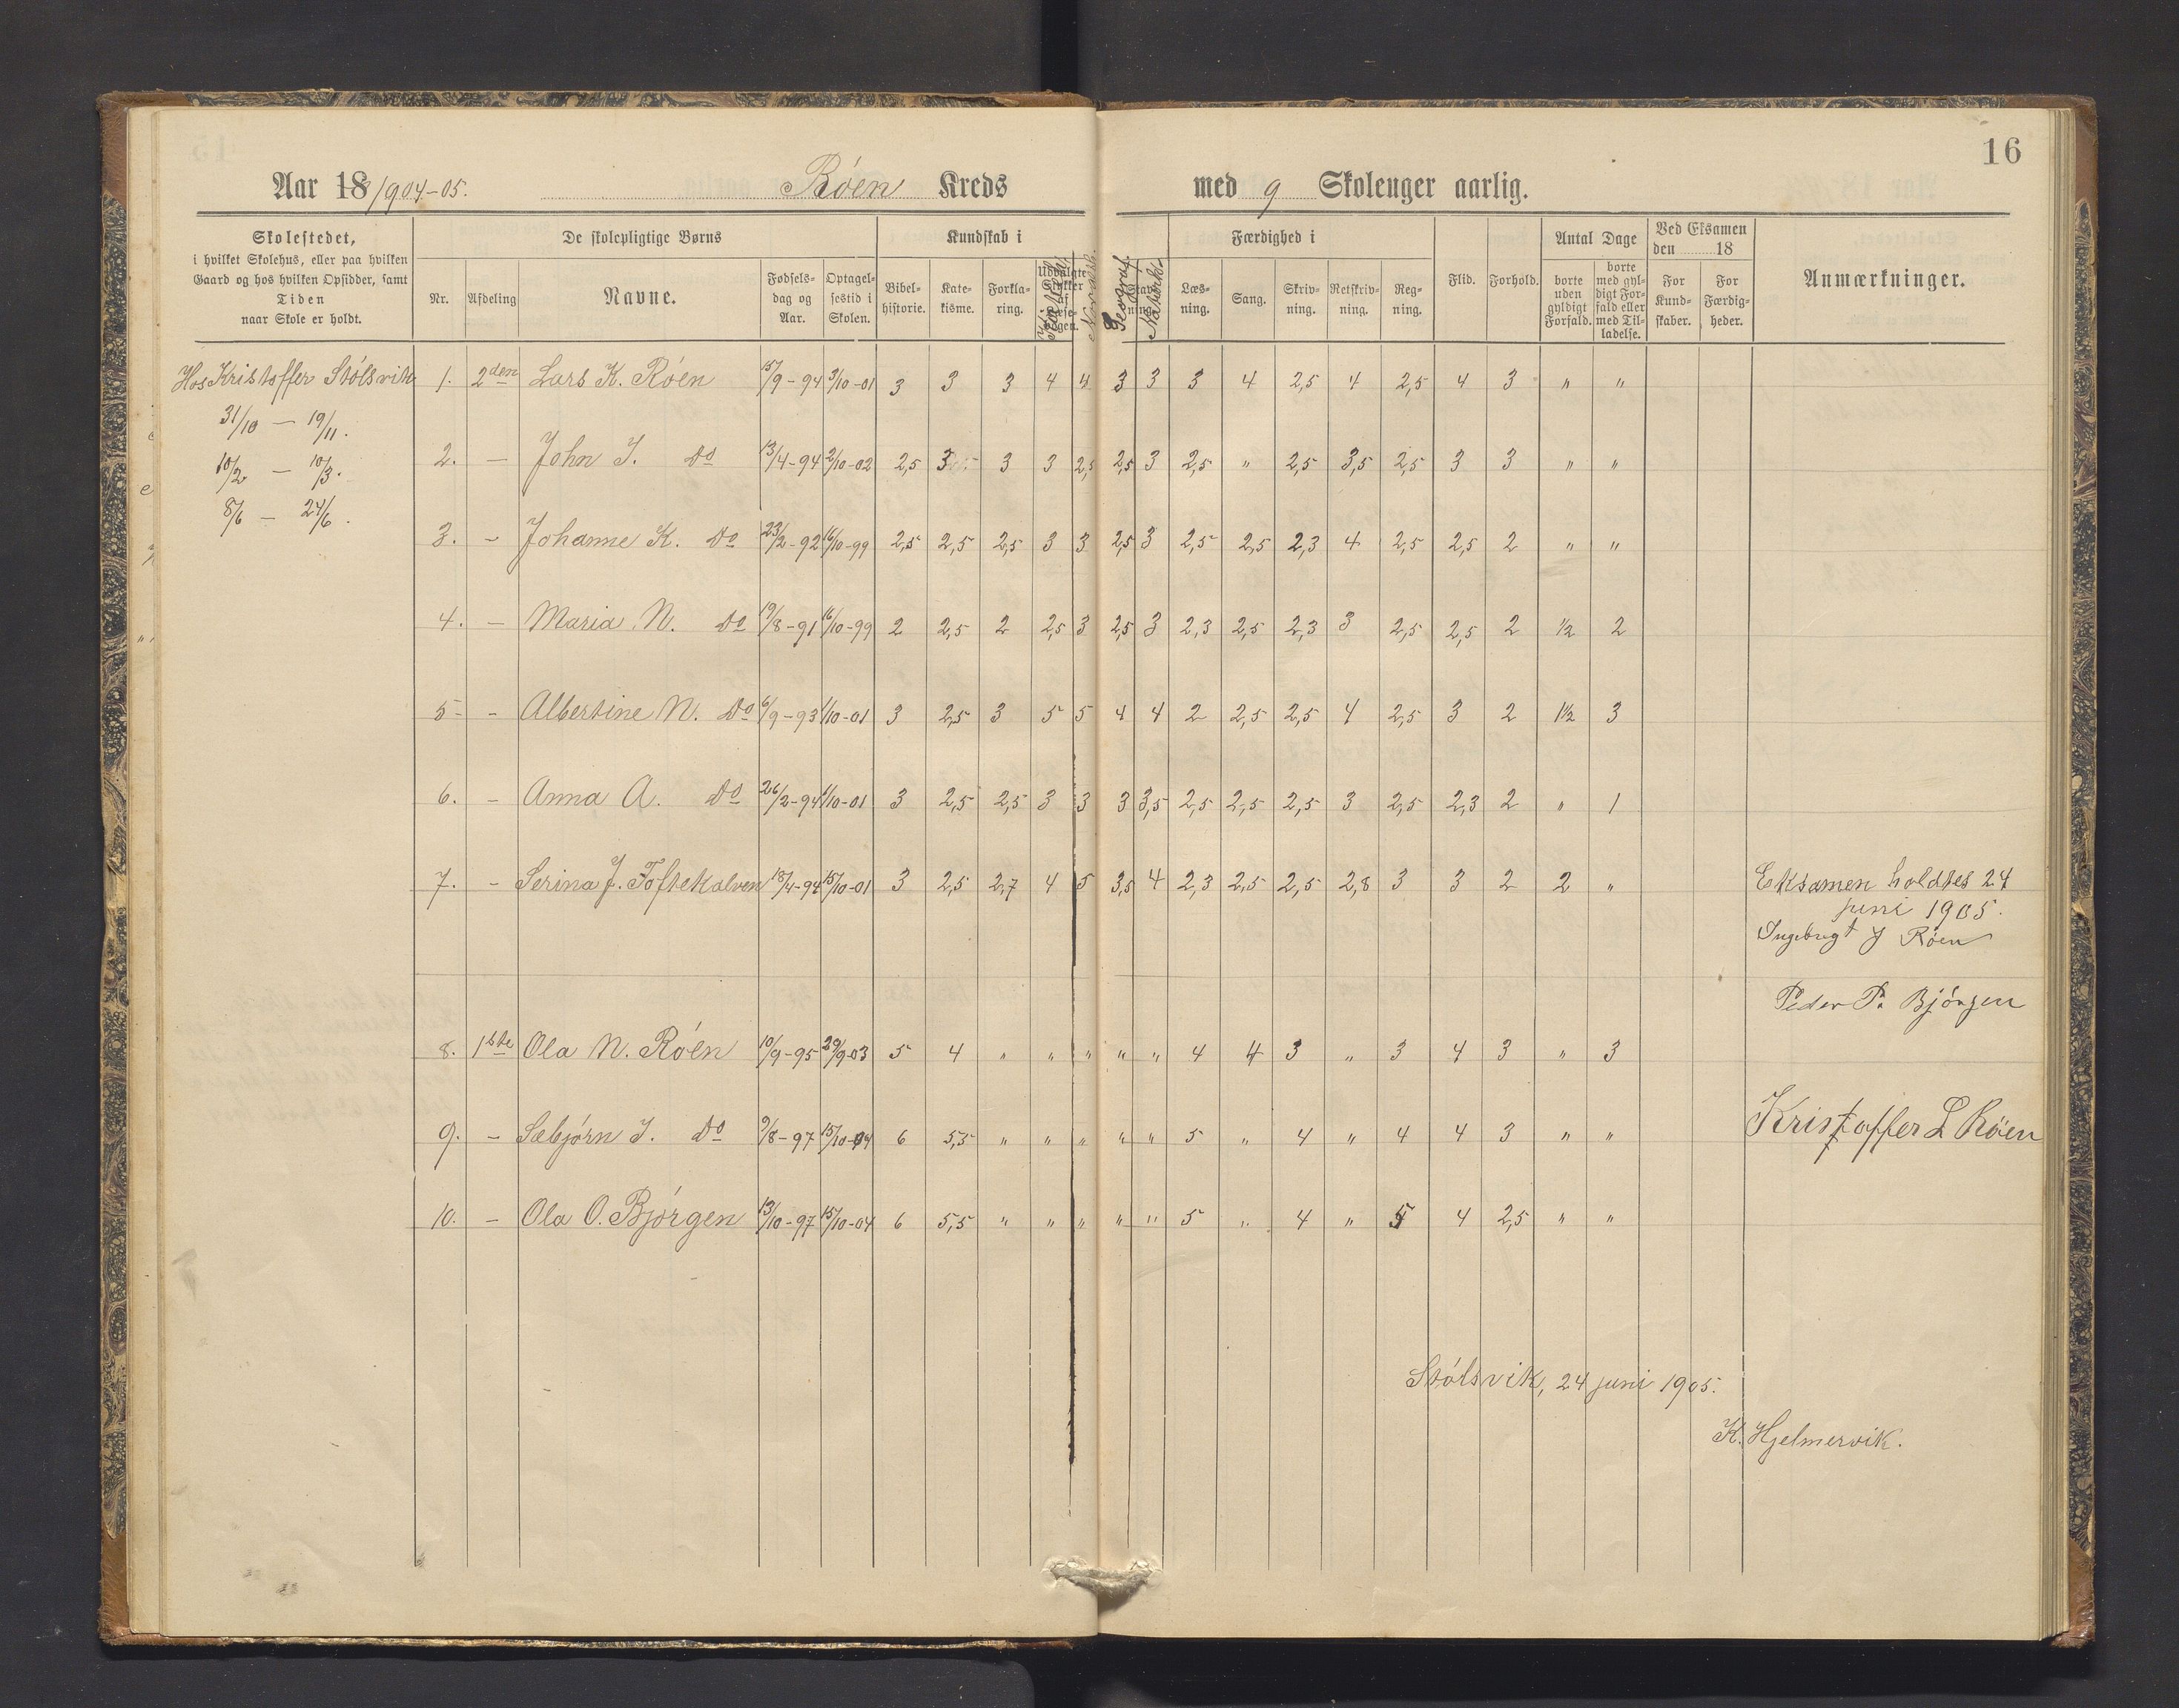 16
Aar 18 1904-05. Røen Kreds med 9 Skoleuger aarlig.
Skolestedet,
i hvilket Skolehus, eller paa hvilken
Gaard og hos hvilken Opsidder, samt
Tiden
naar Skole er holdt.
De skolepligtige Børns
Nr. Afdeling Navne. Fødsels-dag og Aar. Optagelsestid i Skolen.
Kundskab i
Bibelhistorie. Katekisme. Forklaring. Geograf.
Færdighed i
Læsning. Sang. Skrivning. Retskrivning. Regning.
Flid. Forhold.
Antal Dage
borte uden gyldigt Forfald. borte med gyldigt Forfald eller med Tilladelse.
Ved Eksamen den 18
For Kundskaber. For Færdigheder.
Anmærkninger.
Hos Kristoffer Stólsvik
31/10 — 19/11.
10/2 — 10/3.
8/6 — 24/6.
1. 2den Lars K. Róen 15/9-94 3/10-01 3 3 3 4 4 3 3 3 4 2,5 4 2,5 4 3 " "
2. — John I. Do 13/4-94 2/10-02 2,5 3 3 3 2,5 2,5 3 2,5 " 2,5 3,5 2,5 3 3 " "
3. — Johanne K. Do 23/2-92 16/10-99 2,5 2,5 2,5 3 3 2,5 3 2,5 2,5 2,3 4 2,5 2,5 2 " "
4. — Maria N. Do 19/8-91 16/10-99 2 2,5 2 2,5 3 2,5 3 2,3 2,5 2,3 3 2,5 2,5 2 ½ 2
5 - Albertine N. Do 6/9-93 1/10-01 3 2,5 3 5 5 4 4 2 2,5 2,5 4 2,5 3 2 1½ 3
6. - Anna A. Do 26/2-94 1/10-01 3 2,5 2,5 3 3 3 3,5 2,5 2,5 2,5 3 2,5 2,3 2 " 1
7. - Serina J. Toftekalven 18/4-94 15/10-01 3 2,5 2,7 4 5 3,5 4 2,3 2,5 2,5 2,8 3 3 2 2 "
Eksamen holdtes 24
juni 1905.
Ingebrigt J Røen
Peder P. Bjórgen
8. 1ste Ola N. Róen 10/9-95 29/9-03 5 4 " " " " " 4 4 3 " 3 4 3 " 3
9. - Sæbjórn I. Do 9/8-97 15/10-04 6 5,5 " " " " " 5 " 4 " 4 4 3 " "
Kristoffer L Røen
10. - Ola O. Bjórgen 13/10-97 15/10-04 6 5,5 " " " " " 5 " 4 " 5 4 2,5 " "
Stólsvik, 24 juni 1905.
K. Hjelmervik.